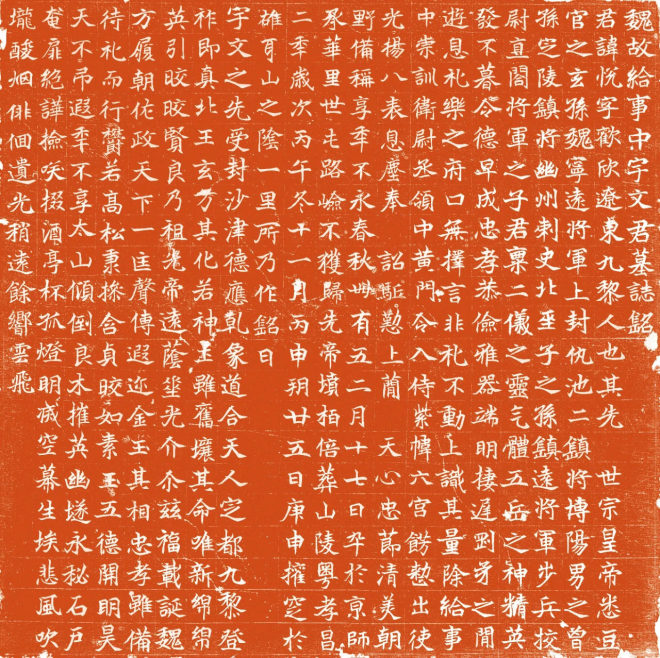 魏故給事中宇文君墓誌銘
君諱悅字歡欣遼東九黎人也其先 世宗皇帝悉豆
官之玄孫魏寧遠將軍上封仇池二鎮將博陽男之曾
孫定陵鎮將幽州刺史北平子之孫鎮遠將軍步兵校
尉直閤將軍之子君稟二儀之靈氣體五岳之神精英
發不暮令德早成忠孝恭儉雅器端明棲遲之間
遊息礼樂之府口無擇言非礼不動上識其量除給事
中崇訓衛尉丞領中黃門令入侍紫幃六宮飭懃出使
光揚八表息塵奉 詔駈懃上簡 天心忠節清美朝
野備稱享年不永春秋卌有五二月十七日卒於京師
承華里世屯路嶮不獲歸先帝墳栢倍葬山陵粵孝昌
二年歲次丙午冬十一月丙申朔廿五日庚申權窆於
碓耳山之陰一里所乃作銘曰
宇文之先受封沙津德應乹象道合天人定都九黎登
祚即真北王玄方其化若神土雖舊壤其命唯新綿綿
英引皎皎賢良乃祖光帝遠蔭光介介茲福載誕魏
方履朝佐政天下一匡聲傳遐迩金玉其相忠孝雖備
待礼而行欝若高松稟操含貞皎如素玉五德開明昊
天不弔遐年不享太山傾倒良木摧英幽墜永秘石戶
奄扉絕譁撿唉掇酒亭杯孤燈明戚空幕生埃悲風吹
壠酸烟俳佪遺光稍遠餘響雲飛